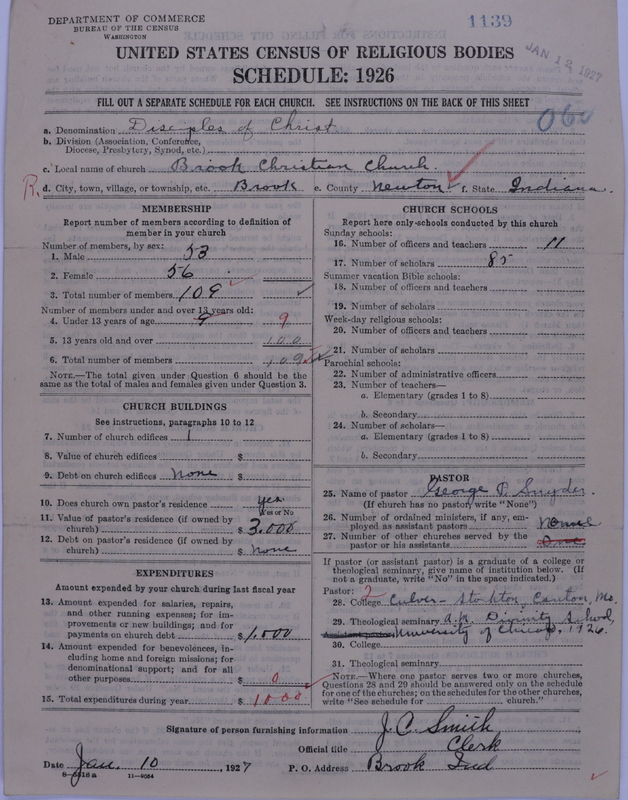 DEPARTMENT OF COMMERCE
BUREAU OF THE CENSUS
WASHINGTON
1139
JAN 12 1927
UNITED STATES CENSUS OF RELIGIOUS BODIES
SCHEDULE: 1926
FILL OUT A SEPARATE SCHEDULE FOR EACH CHURCH. SEE INSTRUCTIONS ON THE BACK OF THIS SHEET
060
a. Denomination Disciples of Christ
b. Division (Association, Conference, Diocese, Presbytery, Synod, etc.)
c. Local name of church Brook Christian Church
R. d. City, town, village, or township, etc. Brook e. County Newton f. State Indiana.
MEMBERSHIP
Report number of members according to definition of
member in your church
Number of members, by sex:
1. Male 53
2. Female 56
3. Total number of members 109
Number of members under and over 13 years old:
4. Under 13 years of age 9 9
5. 13 years old and over 100
6. Total number of members 109
NOTE.—The total given under Question 6 should be
same as the total of males and females given under Question 3.
CHURCH BUILDINGS
See instructions, paragraphs 10 to 12
7. Number of church edifices 1
8. Value of church edifices $
9. Debt on church edifices None $
10. Does church own pastor's residence yes
Yes or No
11. Value of pastor's residence (if owned by
church) $ 3.000
12. Debt on pastor's residence (if owned by
church) $ none
EXPENDITURES
Amount expended by your church during last fiscal year
13. Amount expended for salaries, repairs,
and other running expenses; for im-
provements or new buildings; and for
payments on church debt $ 1.000
14. Amount expended for benevolences, in-
cluding home and foreign missions; for
denominational support; and for all
other purposes $ 0
15. Total expenditures during year $ 1000
CHURCH SCHOOLS
Report here only schools conducted by this church
Sunday schools:
16. Number of officers and teachers 11
17. Number of scholars 85
Summer vacation Bible schools:
18. Number of officers and teachers
19. Number of scholars
Week-day religious schools:
20. Number of officers and teachers
21. Number of scholars
Parochial schools:
22. Number of administrative officers
23. Number of teachers—
a. Elementary (grades 1 to 8)
b. Secondary
24. Number of scholars—
a. Elementary (grades 1 to 8)
b. Secondary
PASTOR
25. Name of pastor George P. Snyder.
(If church has no pastor, write "None")
26. Number of ordained ministers, if any, em-
ployed as assistant pastors None
27. Number of other churches served by the
pastor or his assistants One
If pastor (or assistant pastor) is a graduate of a college or
theological seminary, give name of institution below. (If
not a graduate, write "No" in the space indicated.)
Pastor: 2
28. College Culver-Stockton, Canton, Mo.
29. Theological seminary Divinity School,
University of Chicago, 1926.
30. College
31. Theological seminary
NOTE.—Where one pastor serves two or more churches,
Questions 28 and 29 should be answered only on the schedule
for one of the churches; on the schedules for the other churches,
write "See schedule for church."
Signature of person furnishing information J. C. Smith
Official title Clerk
Date Jan. 10, 1927 P. O. Address Brook Ind
11—9084